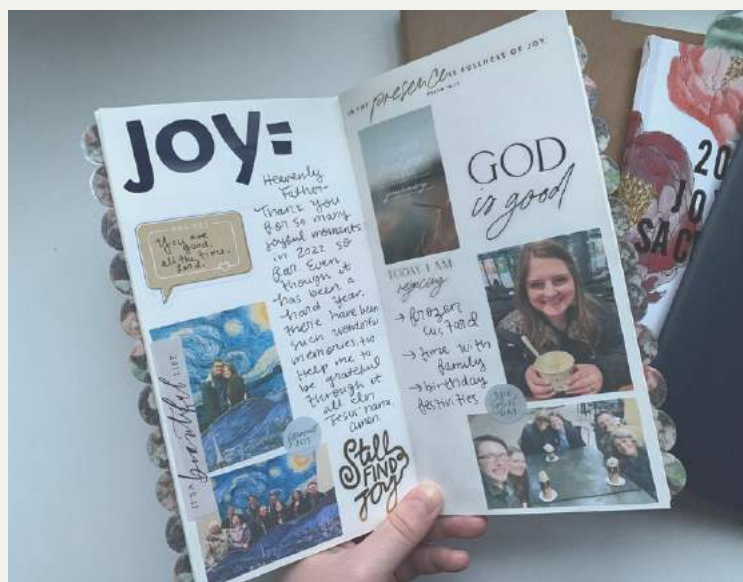 JOY=
Heavenly
Father-
Thank you
for so many
joyful moments
in 2022 so
far. Even
though it
has been a
hard year,
there have been
such wonderful
memories, too.
Help me to
be grateful
through it
all. In
Jesus' name,
amen.
You are
good.
all the time,
Lord.
it's a beautiful LIFE
Still
FIND
JOY
IN THY presence IS FULLNESS OF JOY
journey
GOD
is good
TODAY I AM
rejoicing
→ frozen
custard
→ time with
family
→ birthday
festivities
20
JO
SAC